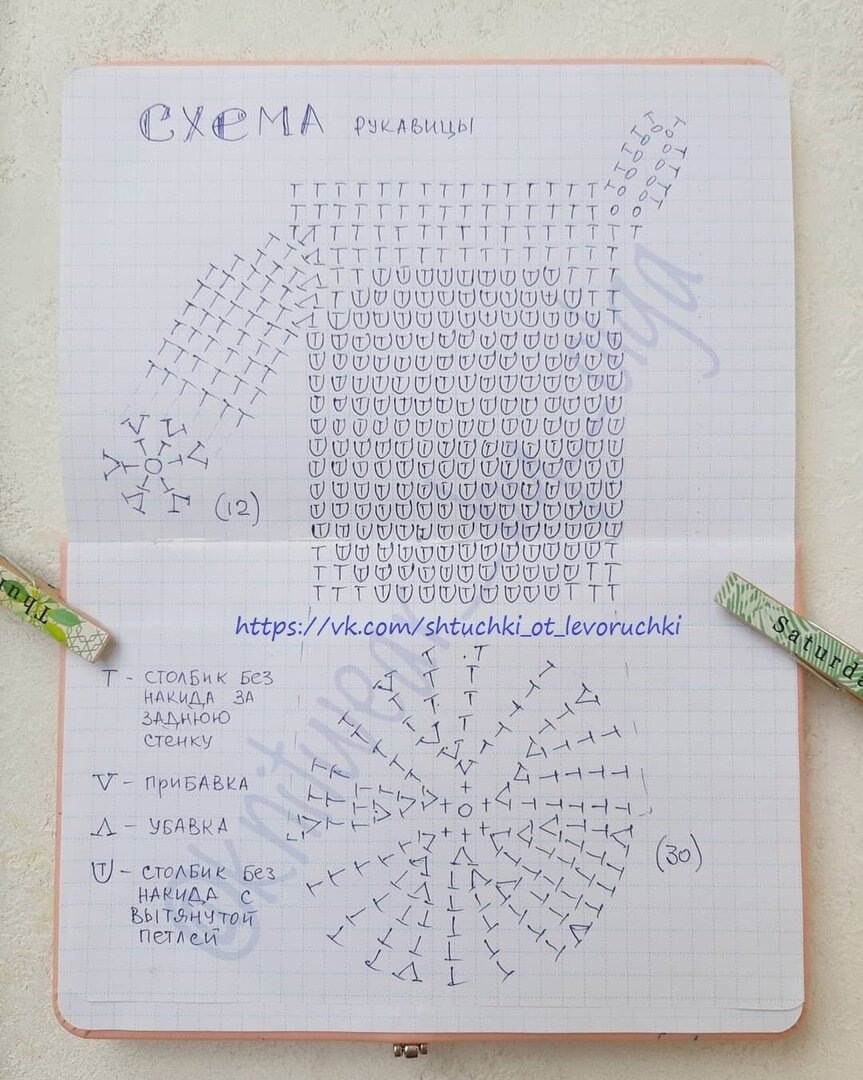 СХЕМА РУКАВИЦЫ
(12)
https://vk.com/shtuchki_ot_levoruchki
T - СТОЛБИК БЕЗ
НАКИДА ЗА
ЗАДНЮЮ
СТЕНКУ
V - ПРИБАВКА
Λ - УБАВКА
(30)
СТОЛБИК БЕЗ
НАКИДА С
ВЫТЯНУТОЙ
ПЕТЛЕЙ
Thu
Saturda